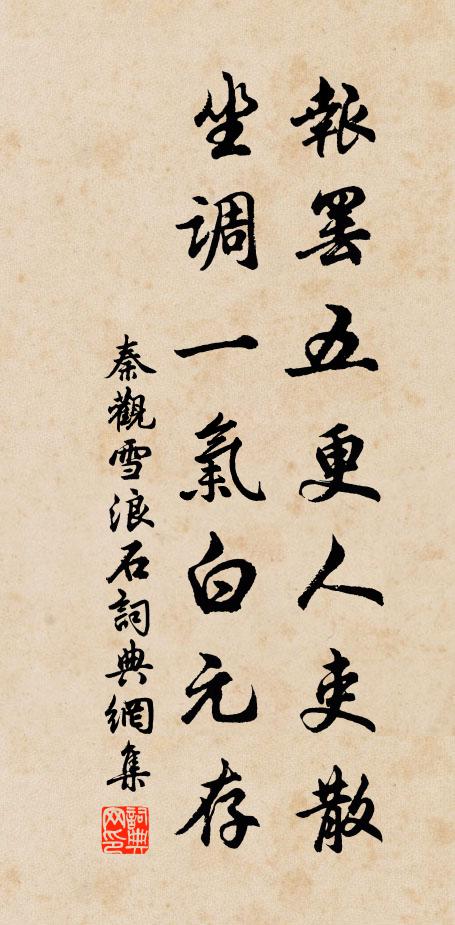 報罷五更人吏散
坐調一氣白元存
秦觀雪浪石詞典網集
詞典网印